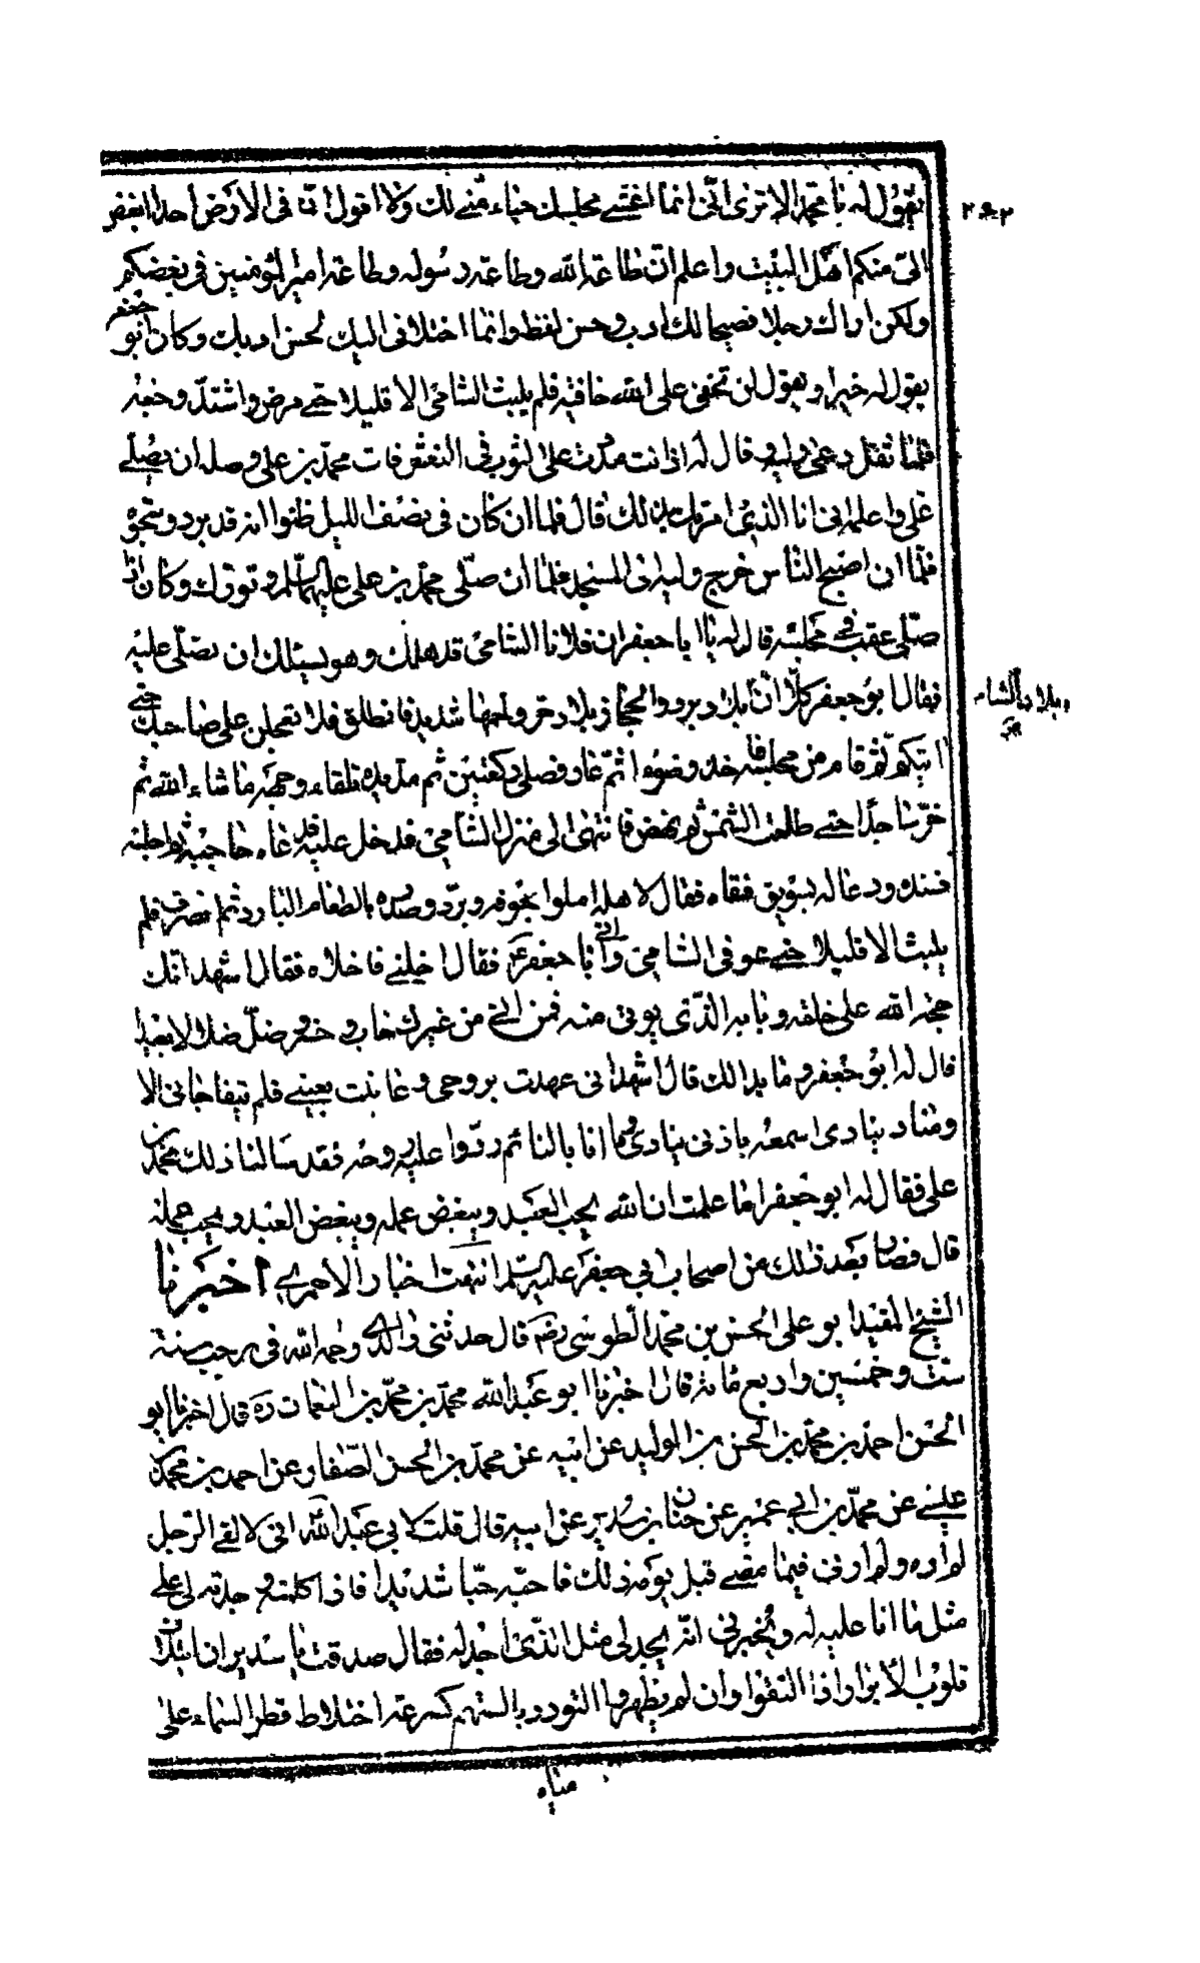 يقول له يا محمد الا ترى انى انما اغشى مجلسك حياء منى لك ولا اقول ان فى الارض احدا ابغض
الى منكم اهل البيت واعلم ان طاعة الله وطاعة رسوله وطاعة امير المؤمنين فى بغضكم
ولكن اراك رجلا فصيحا لك ادب وحسن لفظ وانما اختلافى اليك لحسن ادبك وكان ابو جعفر
يقول له خيرا ويقول لن تخفى على الله خافية فلم يلبث الشامى الا قليلا حتى مرض واشتد وجعه
فلما ثقل دعى وليه وقال له اذا انت مددت على الثوب فى النعش فات محمد بن على وسله ان يصلى
على واعلمه انى انا الذى امرتك بذلك قال فلما ان كان فى نصف الليل ظنوا انه قد برد وسجوه
فلما ان اصبح الناس خرج وليه الى المسجد فلما ان صلى محمد بن على عليهما السلم وتورك وكان اذا
صلى عقب فى مجلسه قال له يا ابا جعفر ان فلانا الشامى قد هلك وهو يسئلك ان تصلى عليه
فقال ابو جعفر كلا ان بلاد برد والحجاز بلاد حر ولهبها شديد فانطلق فلا تعجلن على صاحبك حتى
وبلاد الشام
اتيكم ثم قام من مجلسه فاخذ وضوء اثم عاد فصلى ركعتين ثم مد يده تلقاء وجهه ما شاء الله ثم
خر ساجدا حتى طلعت الشمس ثم نهض فانتهى الى منزل الشامى فدخل عليه فدعاه فاجابه ثم اجلسه
فسنده ودعا له بسويق فسقاه فقال لاهله املوا جوفه وبردوا صدره بالطعام البارد ثم انصرف فلم
يلبث الا قليلا حتى عوفى الشامى واتى ابا جعفر فقال اخلنى فاخلاه فقال اشهد انك
حجة الله على خلقه وبابه الذى يوتى منه فمن اتى من غيرك خاب وخسر وضل ضلالا بعيدا
قال له ابو جعفر وما بدا لك قال اشهد انى عهدت بروحى وعاينت بعينى فلم يتفاجانى الا
ومناد ينادى اسمعه باذنى ينادى وما انا بالنائم ردوا عليه روحه فقد سالنا ذلك محمد بن
على فقال له ابو جعفر اما علمت ان الله يحب العبد ويبغض عمله ويبغض العبد ويحب عمله
قال فصار بعد ذلك من اصحاب ابى جعفر عليه السلم انتهت اخبار الاحمرى اخبرنا
الشيخ المفيد ابو على الحسن بن محمد الطوسى رضه قال حدثنى والدى رحمه الله فى رجب سنة
ست وخمسين واربع مائة قال اخبرنا ابو عبد الله محمد بن محمد بن النعمان ره قال اخبرنا ابو
الحسن احمد بن محمد بن الحسن بن الوليد عن ابيه عن محمد بن الحسن الصفار عن احمد بن محمد بن
عيسى عن محمد بن ابى عمير عن حنان بن سدير عن ابيه قال قلت لابى عبد الله انى لالقى الرجل
لم اره ولم ارنى فيما مضى قبل يومه ذلك فاحبه حبا شديدا فاذا كلمته وجدته لى على
مثل ما انا عليه له ويخبرنى انه يجد لى مثل الذى اجد له فقال صدقت يا سدير ان ائتلاف
قلوب الابرار اذا التقوا وان لم يظهروا التودد بالسنتهم كسرعة اختلاط قطر السماء على
مياه